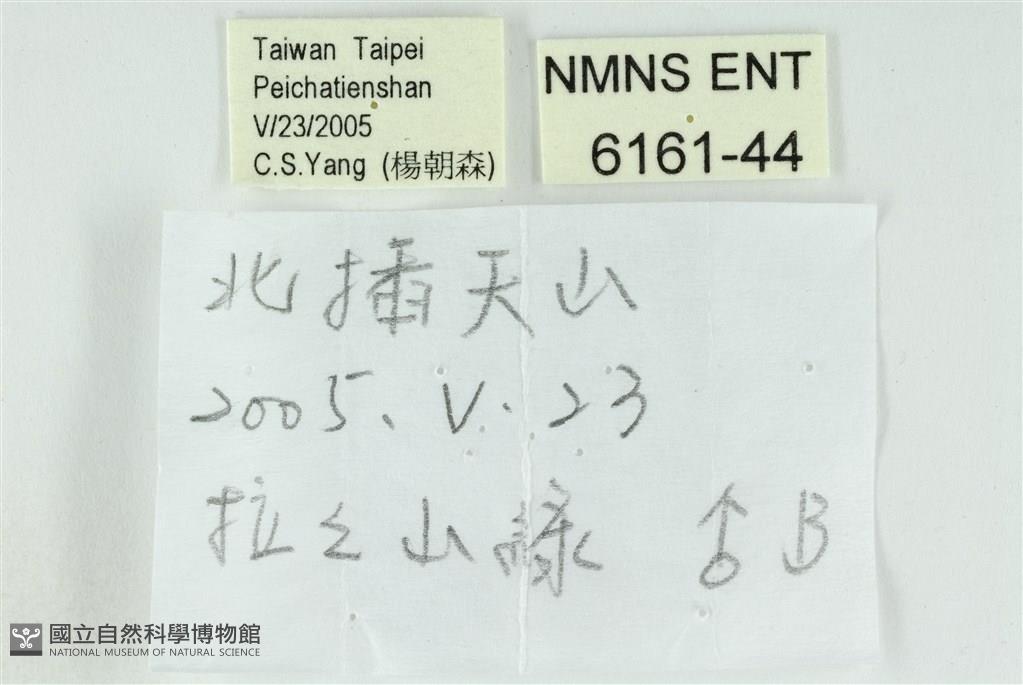 Taiwan Taipei
Peichatienshan
V/23/2005
C.S.Yang (楊朝森)
NMNS ENT
6161-44
北插天山
2005. V. 23
拉々山綠 ♂ B
國立自然科學博物館
NATIONAL MUSEUM OF NATURAL SCIENCE